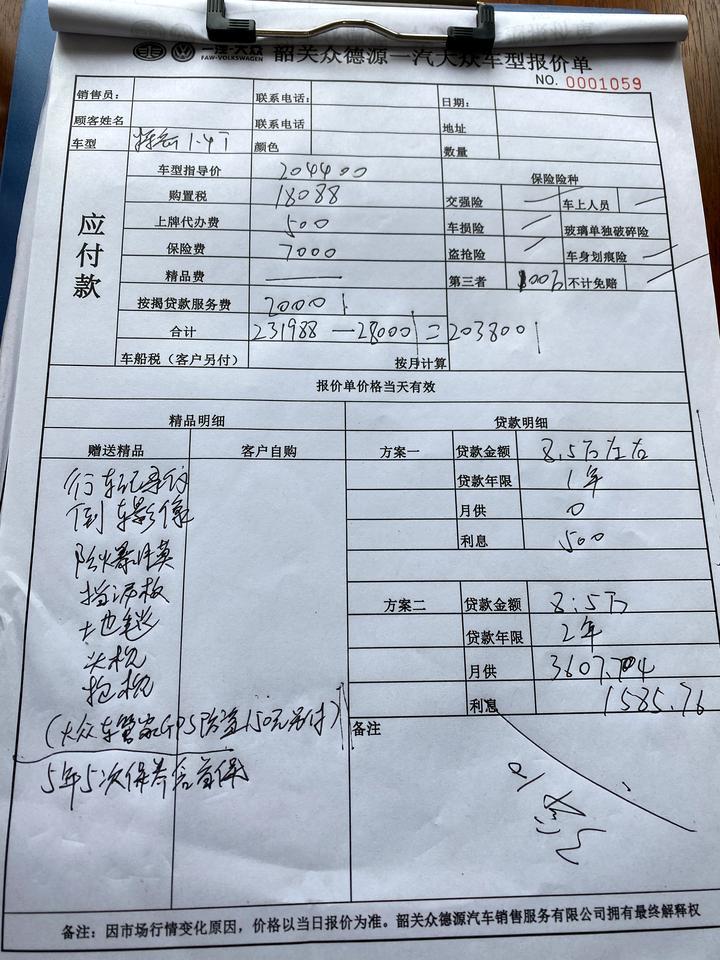 一汽-大众
FAW-VOLKSWAGEN
韶关众德源一汽大众车型报价单
NO. 0001059
销售员： 联系电话： 日期：
顾客姓名 联系电话 地址
车型 1.4T 颜色 数量
应付款
车型指导价 204400 保险险种
购置税 18088 交强险 车上人员
上牌代办费 500 车损险 玻璃单独破碎险
保险费 7000 盗抢险 车身划痕险
精品费 第三者 100万 不计免赔
按揭贷款服务费 2000
合计 231988-28000=203800
车船税（客户另付） 按月计算
报价单价格当天有效
精品明细 贷款明细
赠送精品 客户自购 方案一 贷款金额 8.5万左右
行车记录仪 贷款年限 1年
倒车影像 月供 0
利息 500
防爆
挡泥板 方案二 贷款金额 8.5万
地毯 贷款年限 2年
头枕 月供
抱枕 利息 1585.76
(大众车管家GPS防盗150元另付) 备注
5年5次保养含首保
备注：因市场行情变化原因，价格以当日报价为准。韶关众德源汽车销售服务有限公司拥有最终解释权